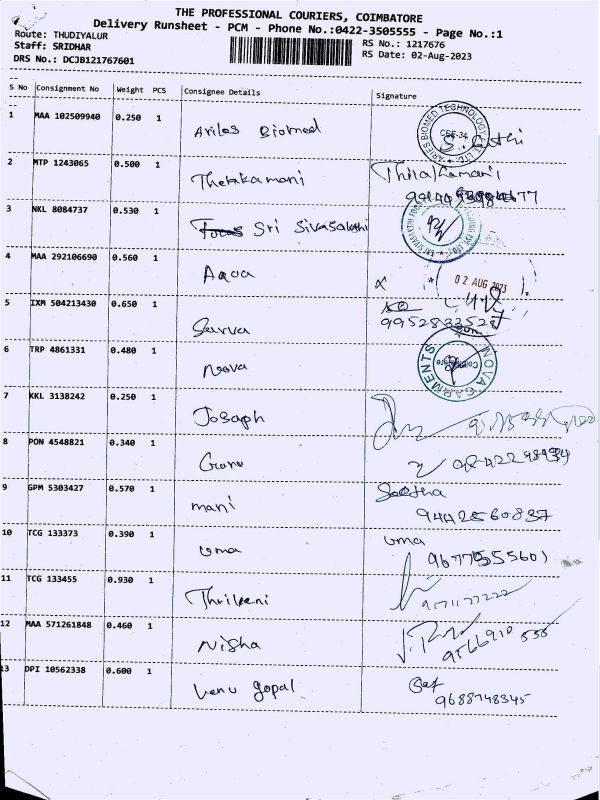 THE PROFESSIONAL COURIERS, COIMBATORE
Delivery Runsheet - PCM - Phone No.:0422-3505555 - Page No.:1
Route: THUDIYALUR
Staff: SRIDHAR
DRS No.: DCJB121767601
RS No.: 1217676
RS Date: 02-Aug-2023
S No Consignment No Weight PCS Consignee Details Signature
1 MAA 102509940 0.250 1 Biomed
ARIES BIOMED TECHNOLOGY
2 MTP 1243065 0.500 1 Thenkamani
3 NKL 8084737 0.530 1 Sri Sivasakthi
4 MAA 292106690 0.560 1 Aqua
02 AUG 2023
5 IXM 504213430 0.650 1 Sarva
6 TRP 4861331 0.480 1 Nova
NOVA GARMENTS
7 KKL 3138242 0.250 1 Joseph
8 PON 4548821 0.340 1
9 GPM 5303427 0.570 1 mani
9442560837
10 TCG 133373 0.390 1 uma uma
11 TCG 133455 0.930 1
12 MAA 571261848 0.460 1 Nisha
13 DPI 10562338 0.600 1 Venu gopal
9688748345